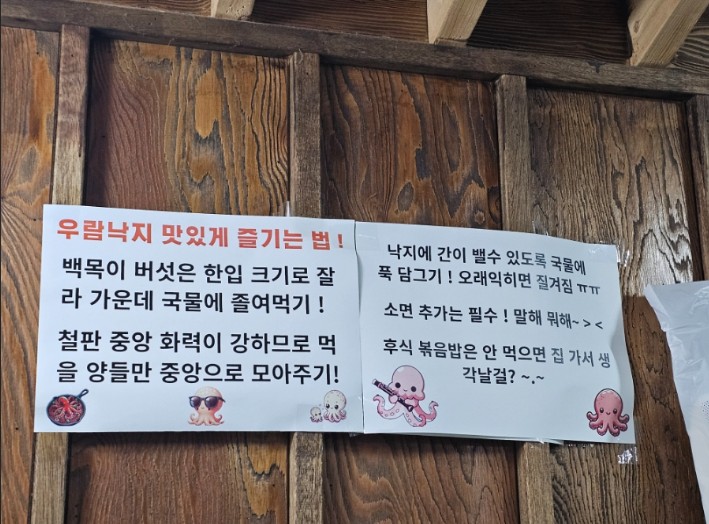 우람낙지 맛있게 즐기는 법 !
백목이 버섯은 한입 크기로 잘
라 가운데 국물에 졸여먹기 !
철판 중앙 화력이 강하므로 먹
을 양들만 중앙으로 모아주기!
낙지에 간이 밸수 있도록 국물에
푹 담그기 ! 오래익히면 질겨짐 ㅠㅠ
소면 추가는 필수 ! 말해 뭐해~ > <
후식 볶음밥은 안 먹으면 집 가서 생
각날걸? ~.~